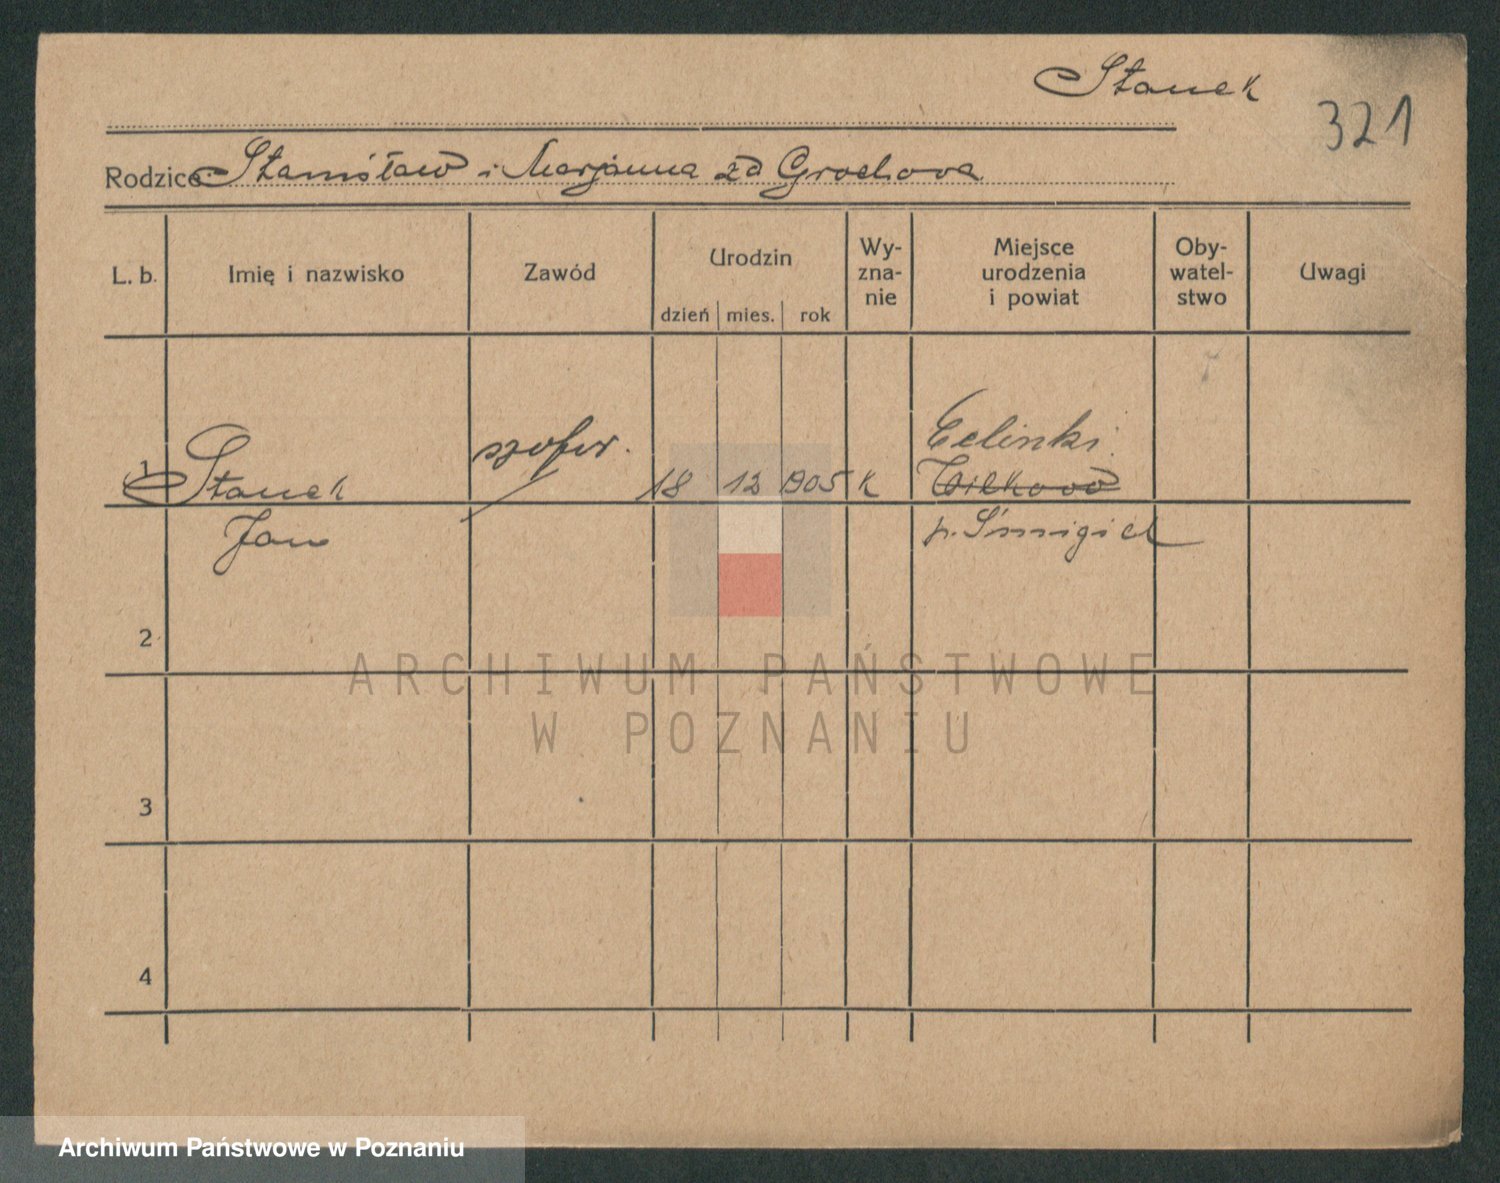 Stanek
321
Rodzice: Stanisław i Marjanna zd Grochova
L. b. Imię i nazwisko Zawód Urodzin dzień mies. rok Wy-zna-nie Miejsce urodzenia i powiat Oby-watel-stwo Uwagi
1 Stanek szofer. 18 12 1905 K Celinki
Jan p. Śmigiel
2
ARCHIWUM PAŃSTWOWE
W POZNANIU
3
4
Archiwum Państwowe w Poznaniu